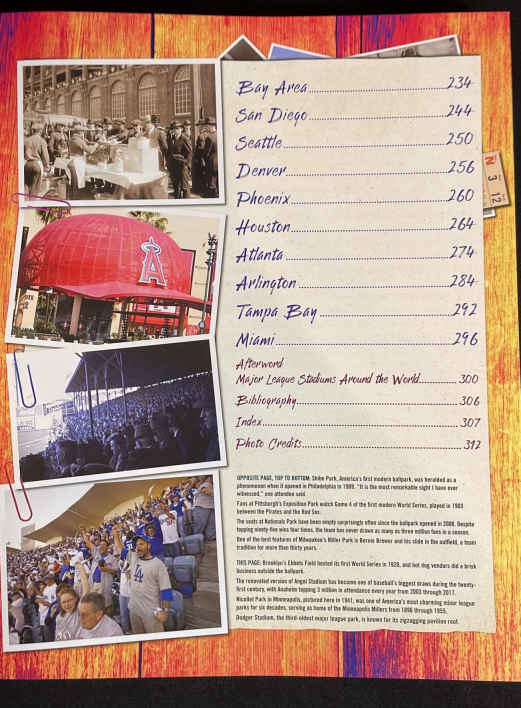 Bay Area 234
San Diego 244
Seattle 250
Denver 256
Phoenix 260
Houston 264
Atlanta 274
Arlington 284
Tampa Bay 292
Miami 296
Afterword
Major League Stadiums Around the World 300
Bibliography 306
Index 307
Photo Credits 312
OPPOSITE PAGE, TOP TO BOTTOM: Shibe Park, America's first modern ballpark, was heralded as a
phenomenon when it opened in Philadelphia in 1909. "It is the most remarkable sight I have ever
witnessed," one attendee said.
Fans at Pittsburgh's Exposition Park watch Game 4 of the first modern World Series, played in 1903
between the Pirates and the Red Sox.
The seats at Nationals Park have been empty surprisingly often since the ballpark opened in 2008. Despite
topping ninety-five wins four times, the team has never drawn as many as three million fans in a season.
One of the best features of Milwaukee's Miller Park is Bernie Brewer and his slide in the outfield, a team
tradition for more than thirty years.
THIS PAGE: Brooklyn's Ebbets Field hosted its first World Series in 1920, and hot dog vendors did a brisk
business outside the ballpark.
The renovated version of Angel Stadium has become one of baseball's biggest draws during the twenty-
first century, with Anaheim topping 3 million in attendance every year from 2003 through 2017.
Nicollet Park in Minneapolis, pictured here in 1941, was one of America's most charming minor league
parks for six decades, serving as home of the Minneapolis Millers from 1896 through 1955.
Dodger Stadium, the third-oldest major league park, is known for its zigzagging pavilion roof.
A
N
3
12